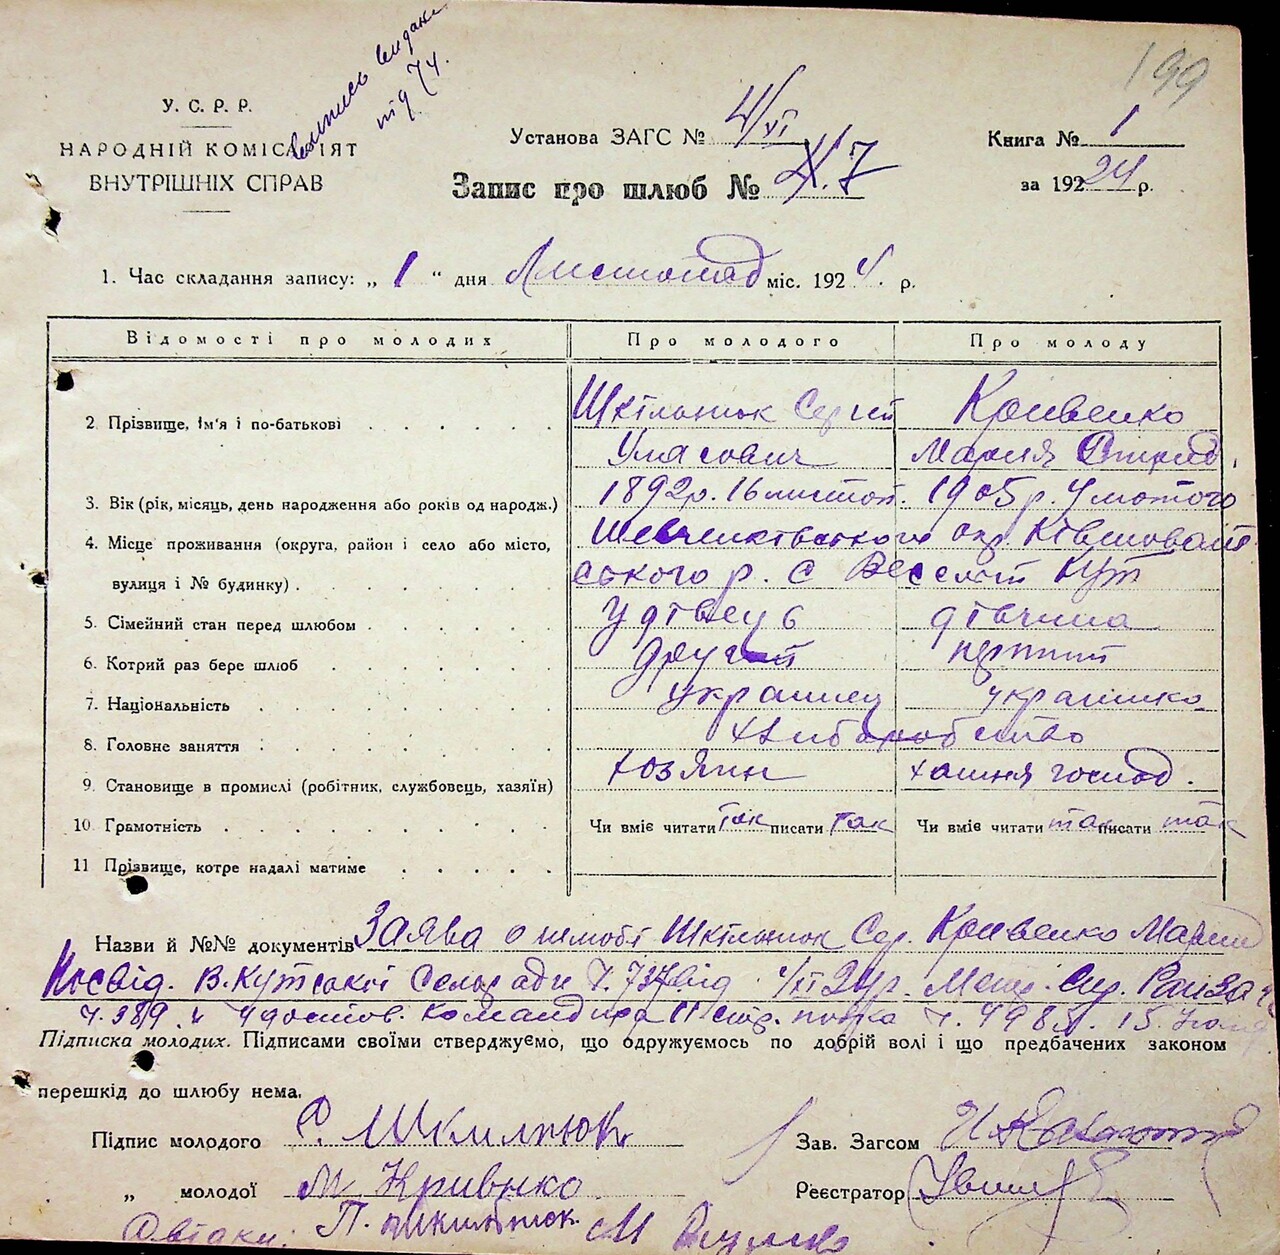 199
випись видана
під 74.
У. С. Р. Р.
НАРОДНІЙ КОМІСАРІЯТ
ВНУТРІШНІХ СПРАВ
Установа ЗАГС № 4/VI
Книга № 1
Запис про шлюб № 7
за 1924 р.
1. Час складання запису: „ 1 “ дня Листопад міс. 1924. р.
Відомості про молодих Про молодого Про молоду
2. Прізвище, ім'я і по-батькові Шкільнюк Сергій Кривенко
Мария Спирид.
3. Вік (рік, місяць, день народження або років од народж.) 1892р. 16 листоп. 1905 р. 4 лютого
4. Місце проживання (округа, район і село або місто, Шевченківського окр.
вулиця і № будинку) ського р. с Веселий Кут
5. Сімейний стан перед шлюбом удівець дівчина
6. Котрий раз бере шлюб другий перший
7. Національність украинец украинка
8. Головне заняття хліборобство
9. Становище в промислі (робітник, службовець, хазяїн) хозяин хатня господ.
10. Грамотність Чи вміє читати так писати так Чи вміє читати так писати так
11 Прізвище, котре надалі матиме
Назви й №№ документів Заява о шлюбі Шкільнюк Сер. Кривенко Марии
Посвід. В. Кутської Сельради від р.
ч. 389 и удостов. Командира полка ч.
Підписка молодих. Підписами своїми стверджуємо, що одружуємось по добрій волі і що предбачених законом
перешкід до шлюбу нема.
Підпис молодого С. Шкилнюк Зав. Загсом
„ молодої М Кривнко Реєстратор
Свідки: П.